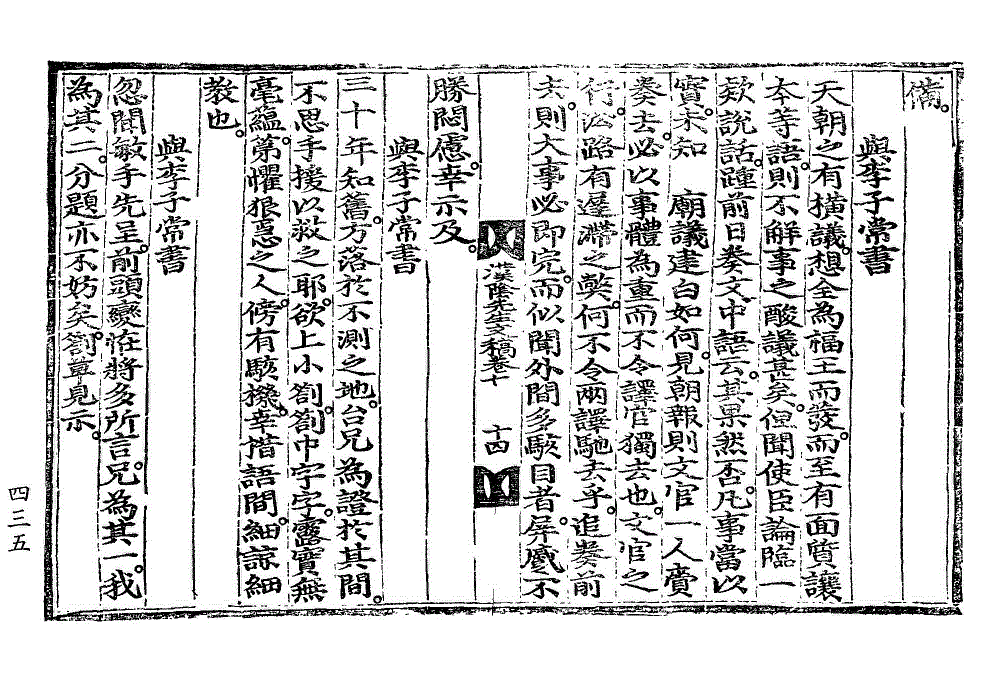 備。
與李子常書
天朝之有橫議。想全為福王而發。而至有面質讓
本等語。則不解事之酸議甚矣。但聞使臣論臨一
欵說話。踵前日奏文中語云。其果然否。凡事當以
實。未知 廟議建白如何。見朝報則文官一人賫
奏去。必以事體為重。而不令譯官獨去也。文官之
行。沿路有遲滯之弊。何不令兩譯馳去乎。追奏前
去則大事必即完。而似聞外間多駭目者。屏處不
漢陰先生文稿卷十 十四
勝悶慮。幸示及。
與李子常書
三十年知舊。方落於不測之地。台兄為證於其間。
不思手援以救之耶。欲上小箚。箚中字字。露實無
毫蘊。第懼狠惡之人。傍有駭機。幸措語間。細諒細
教也。
與李子常書
忽聞敏手先呈。前頭變怪將多所言。兄為其一。我
為其二。分題亦不妨矣。箚草見示。
四三五